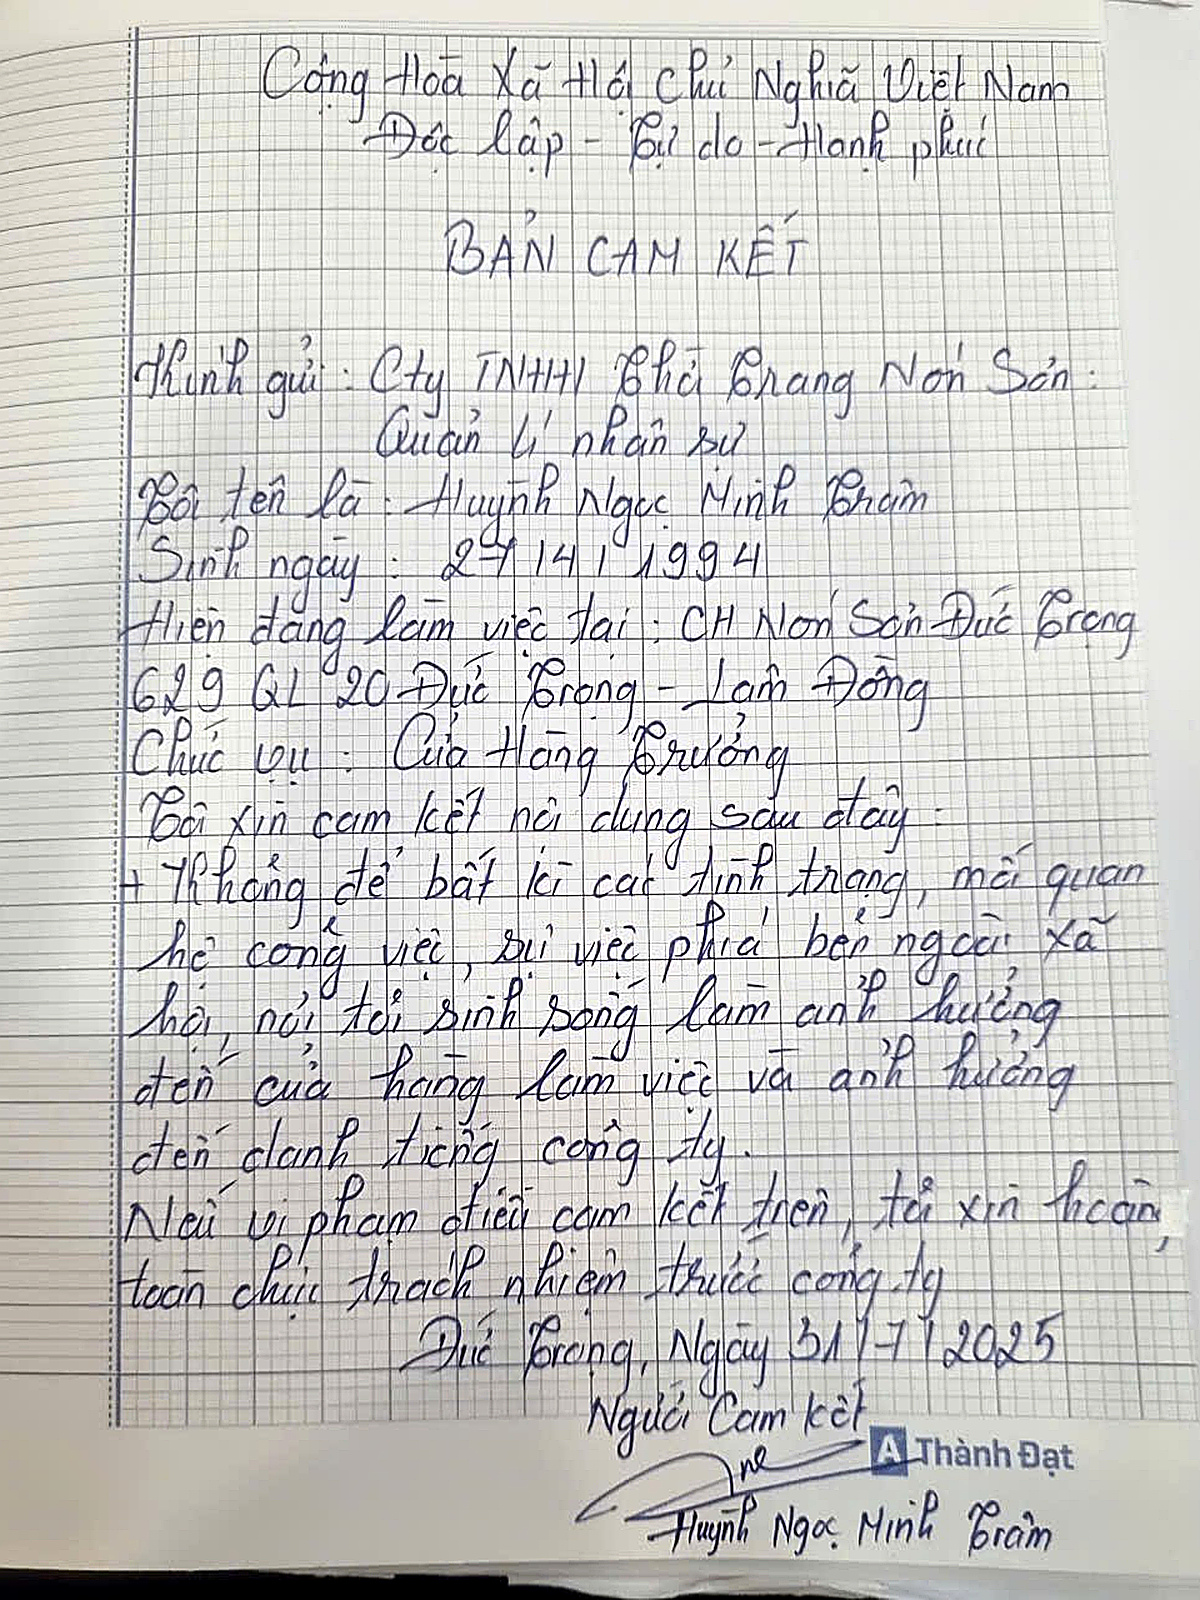 Cộng Hòa Xã Hội Chủ Nghĩa Việt Nam
Độc lập - Tự do - Hạnh phúc
BẢN CAM KẾT
Kính gửi : Cty TNHH Thời Trang Nón Sơn :
Quản lí nhân sự
Tôi tên là : Huỳnh Ngọc Minh Trâm
Sinh ngày : 27/4/1994
Hiện đang làm việc tại : CH Nón Sơn Đức Trọng
629 QL 20 Đức Trọng - Lâm Đồng
Chức vụ : Cửa Hàng Trưởng
Tôi xin cam kết nội dung sau đây :
+ Không để bất kì các tình trạng, mối quan
hệ công việc, sự việc phía bên ngoài xã
hội, nơi tôi sinh sống làm ảnh hưởng
đến cửa hàng làm việc và ảnh hưởng
đến danh tiếng công ty.
Nếu vi phạm điều cam kết trên, tôi xin hoàn
toàn chịu trách nhiệm trước công ty
Đức Trọng, Ngày 31/7/2025
Người Cam kết
Thành Đạt
Huỳnh Ngọc Minh Trâm